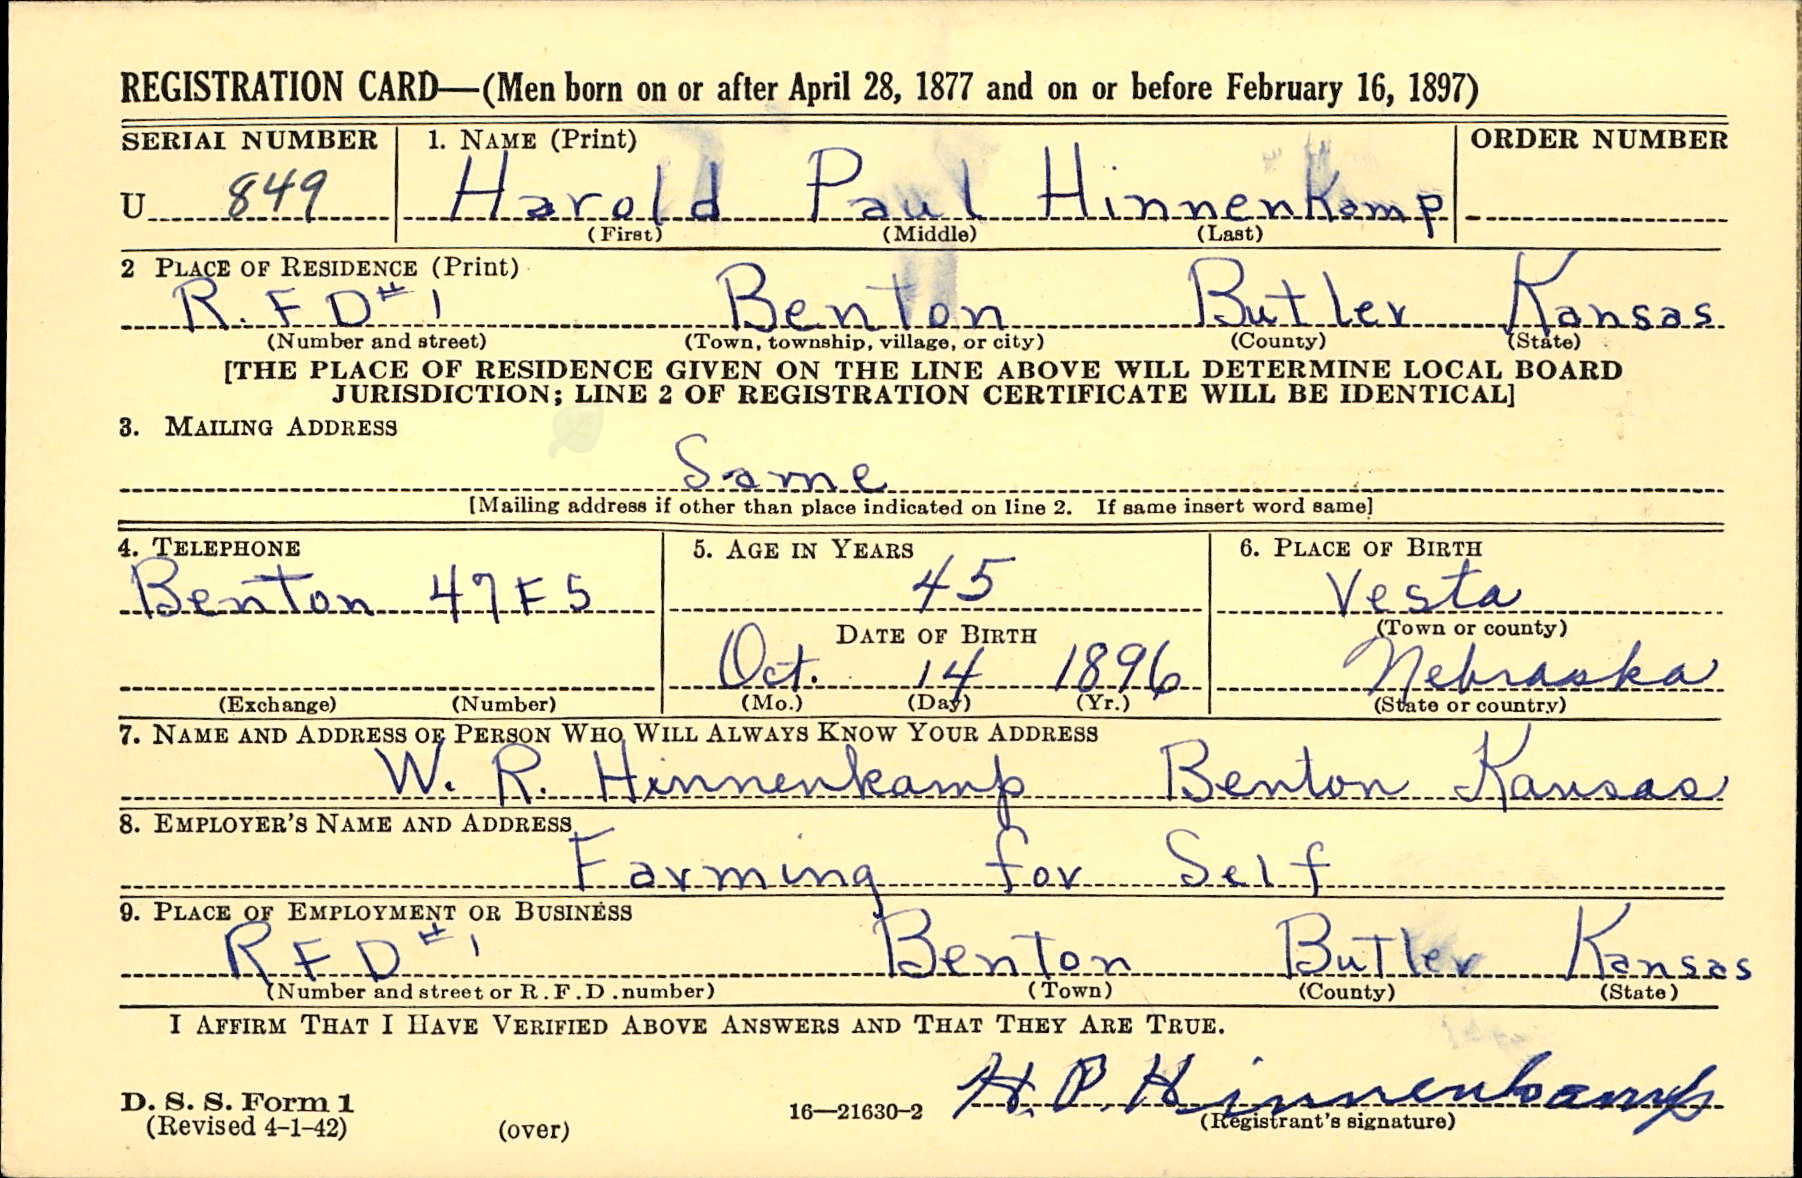 REGISTRATION CARD—(Men born on or after April 28, 1877 and on or before February 16, 1897)
SERIAL NUMBER 1. NAME (Print) ORDER NUMBER
U 849 Harold Paul Hinnenkamp
(First) (Middle) (Last)
2 PLACE OF RESIDENCE (Print)
R. F D #1 Benton Butler Kansas
(Number and street) (Town, township, village, or city) (County) (State)
[THE PLACE OF RESIDENCE GIVEN ON THE LINE ABOVE WILL DETERMINE LOCAL BOARD
JURISDICTION; LINE 2 OF REGISTRATION CERTIFICATE WILL BE IDENTICAL]
3. MAILING ADDRESS
Same
[Mailing address if other than place indicated on line 2. If same insert word same]
4. TELEPHONE 5. AGE IN YEARS 6. PLACE OF BIRTH
Benton 47F5 45 Vesta
DATE OF BIRTH (Town or county)
Oct. 14 1896 Nebraska
(Exchange) (Number) (Mo.) (Day) (Yr.) (State or country)
7. NAME AND ADDRESS OF PERSON WHO WILL ALWAYS KNOW YOUR ADDRESS
W. R. Hinnenkamp Benton Kansas
8. EMPLOYER'S NAME AND ADDRESS
Farming for Self
9. PLACE OF EMPLOYMENT OR BUSINESS
R F D #1 Benton Butler Kansas
(Number and street or R. F. D. number) (Town) (County) (State)
I AFFIRM THAT I HAVE VERIFIED ABOVE ANSWERS AND THAT THEY ARE TRUE.
H. P. Hinnenkamp
D. S. S. Form 1 16—21630-2 (Registrant's signature)
(Revised 4-1-42) (over)